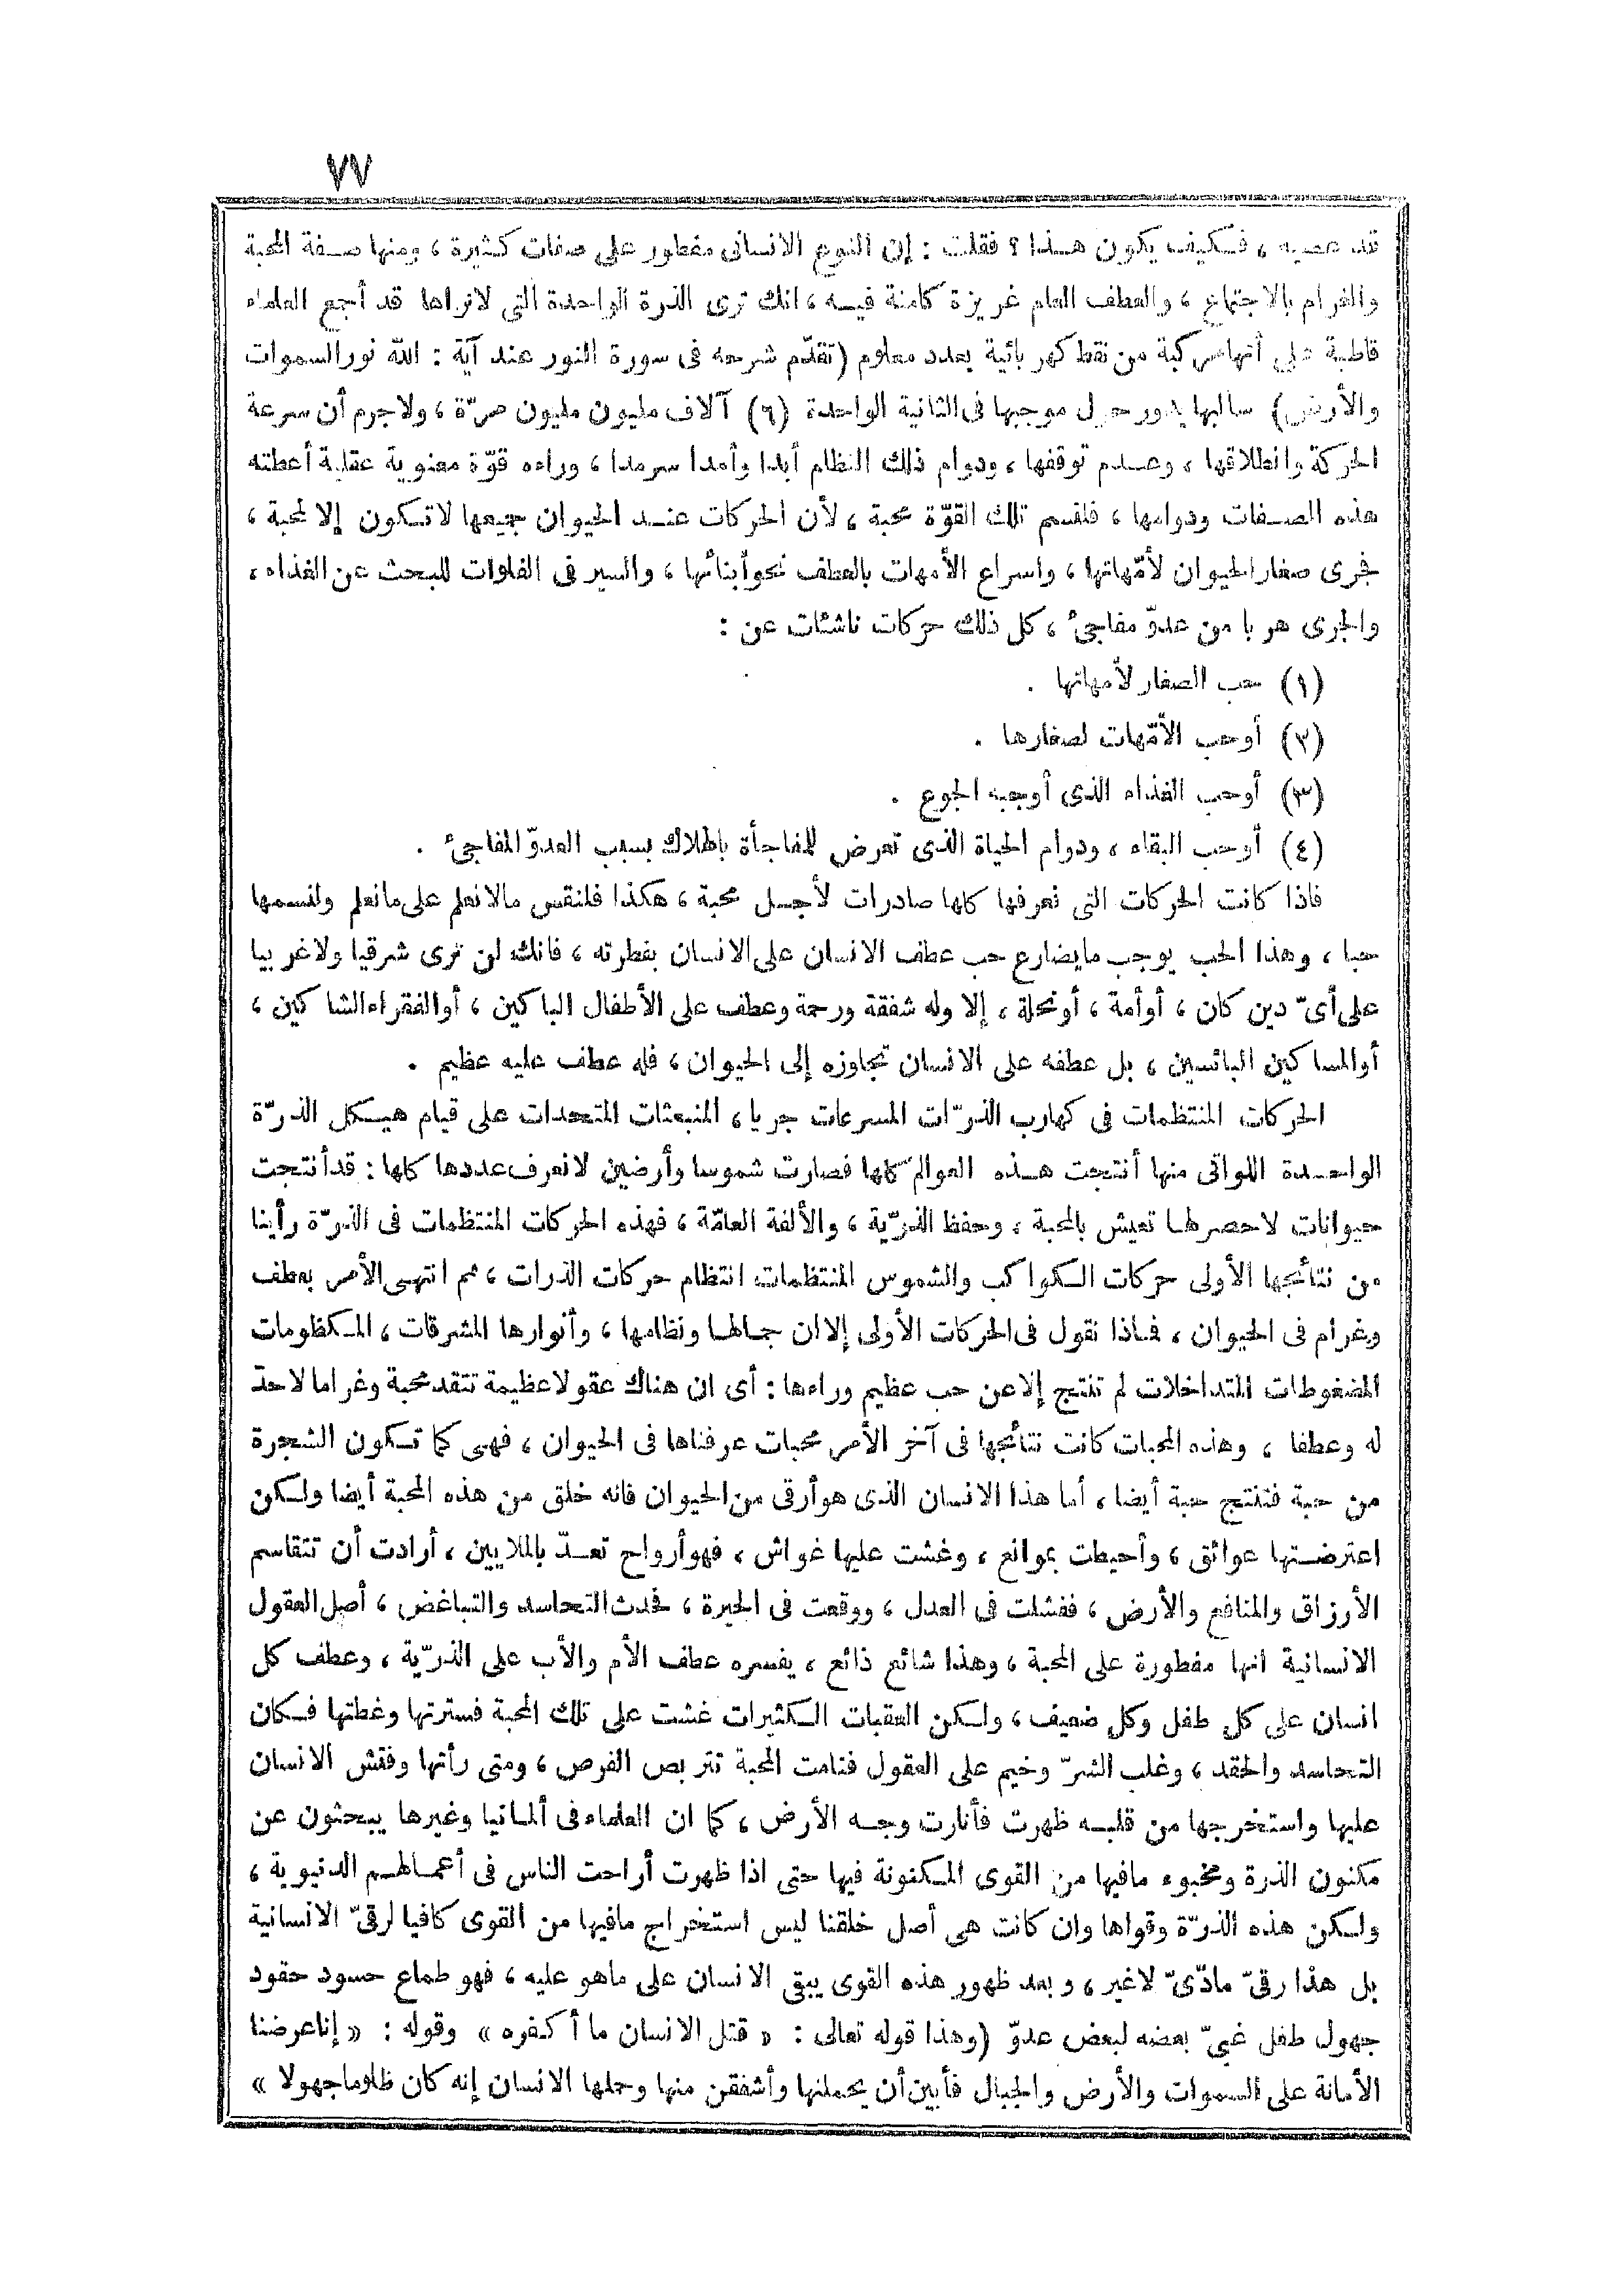 ٧٧
قد عصيه ، فكيف يكون هذا ؟ فقلت : إن النوع الانسانى مفطور على صفات كثيرة ، ومنها صفة المحبة
والغرام بالاجتماع ، والعطف العام غريزة كامنة فيه ، انك ترى الذرة الواحدة التى لانراها قد أجمع العلماء
قاطبة على أنها مركبة من نقط كهربائية بعدد معلوم (تقدّم شرحه فى سورة النور عند آية : الله نور السموات
والأرض) سالبها يدور حول موجبها فى الثانية الواحدة (٦) آلاف مليون مليون مرّة ، ولاجرم أن سرعة
الحركة وانطلاقها ، وعدم توقفها ، ودوام ذلك النظام أبدا وأمدا سرمدا ، وراءه قوّة معنوية عقلية أعطته
هذه الصفات ودوامها ، فلنسم تلك القوّة محبة ، لأن الحركات عند الحيوان جميعها لاتكون إلا لمحبة ،
فجرى صغار الحيوان لأمّهاتها ، واسراع الأمهات بالعطف نحو أبنائها ، والسير فى الفلوات للبحث عن الغذاء ،
والجرى هربا من عدوّ مفاجئ ، كل ذلك حركات ناشئات عن :
(١) حب الصغار لأمهاتها .
(٢) أوحب الأمّهات لصغارها .
(٣) أوحب الغذاء الذى أوجبه الجوع .
(٤) أوحب البقاء ، ودوام الحياة الذى تعرض للمفاجأة بالهلاك بسبب العدوّ المفاجئ .
فاذا كانت الحركات التى نعرفها كلها صادرات لأجل محبة ، هكذا فلنقس مالانعلم على مانعلم ولنسمها
حبا ، وهذا الحب يوجب مايضارع حب عطف الانسان على الانسان بفطرته ، فانك لن ترى شرقيا ولاغربيا
على أىّ دين كان ، أوأمة ، أونحلة ، إلا وله شفقة ورحمة وعطف على الأطفال الباكين ، أوالفقراء الشاكين ،
أوالمساكين البائسين ، بل عطفه على الانسان تجاوزه إلى الحيوان ، فله عطف عليه عظيم .
الحركات المنتظمات فى كهارب الذرّات المسرعات جريا ، المنبعثات المتحدات على قيام هيكل الذرّة
الواحدة اللواتى منها أنتجت هذه العوالم كلها فصارت شموسا وأرضين لانعرف عددها كلها : قد أنتجت
حيوانات لاحصر لها تعيش بالمحبة ، وحفظ الذرّية ، والألفة العامّة ، فهذه الحركات المنتظمات فى الذرّة رأينا
من نتائجها الأولى حركات الكواكب والشموس المنتظمات انتظام حركات الذرات ، ثم انتهى الأمر بعطف
وغرام فى الحيوان ، فماذا نقول فى الحركات الأولى إلا ان جمالها ونظامها ، وأنوارها المشرقات ، المكظومات
المضغوطات المتداخلات لم تنتج إلا عن حب عظيم وراءها : أى ان هناك عقولا عظيمة تتقد محبة وغراما لاحدّ
له وعطفا ، وهذه المحبات كانت نتائجها فى آخر الأمر محبات عرفناها فى الحيوان ، فهى كما تكون الشجرة
من حبة فتنتج حبة أيضا ، أما هذا الانسان الذى هو أرقى من الحيوان فانه خلق من هذه المحبة أيضا ولكن
اعترضتها عوائق ، وأحيطت بموانع ، وغشت عليها غواش ، فهو أرواح تعدّ بالملايين ، أرادت أن تتقاسم
الأرزاق والمنافع والأرض ، ففشلت فى العدل ، ووقعت فى الحيرة ، فحدث التحاسد والتباغض ، أصل العقول
الانسانية انها مفطورة على المحبة ، وهذا شائع ذائع ، يفسره عطف الأم والأب على الذرّية ، وعطف كل
انسان على كل طفل وكل ضعيف ، ولكن العقبات الكثيرات غشت على تلك المحبة فسترتها وغطتها فكان
التحاسد والحقد ، وغلب الشرّ وخيم على العقول فنامت المحبة تتربص الفرص ، ومتى رأتها وفتش الانسان
عليها واستخرجها من قلبه ظهرت فأنارت وجه الأرض ، كما ان العلماء فى ألمانيا وغيرها يبحثون عن
مكنون الذرة ومخبوء مافيها من القوى المكنونة فيها حتى اذا ظهرت أراحت الناس فى أعمالهم الدنيوية ،
ولكن هذه الذرّة وقواها وان كانت هى أصل خلقنا ليس استخراج مافيها من القوى كافيا لرقىّ الانسانية
بل هذا رقىّ مادّىّ لاغير ، وبعد ظهور هذه القوى يبقى الانسان على ماهو عليه ، فهو طماع حسود حقود
جهول طفل غبىّ بعضه لبعض عدوّ (وهذا قوله تعالى : « قتل الانسان ما أكفره » وقوله : « إنا عرضنا
الأمانة على السموات والأرض والجبال فأبين أن يحملنها وأشفقن منها وحملها الانسان إنه كان ظلوما جهولا »